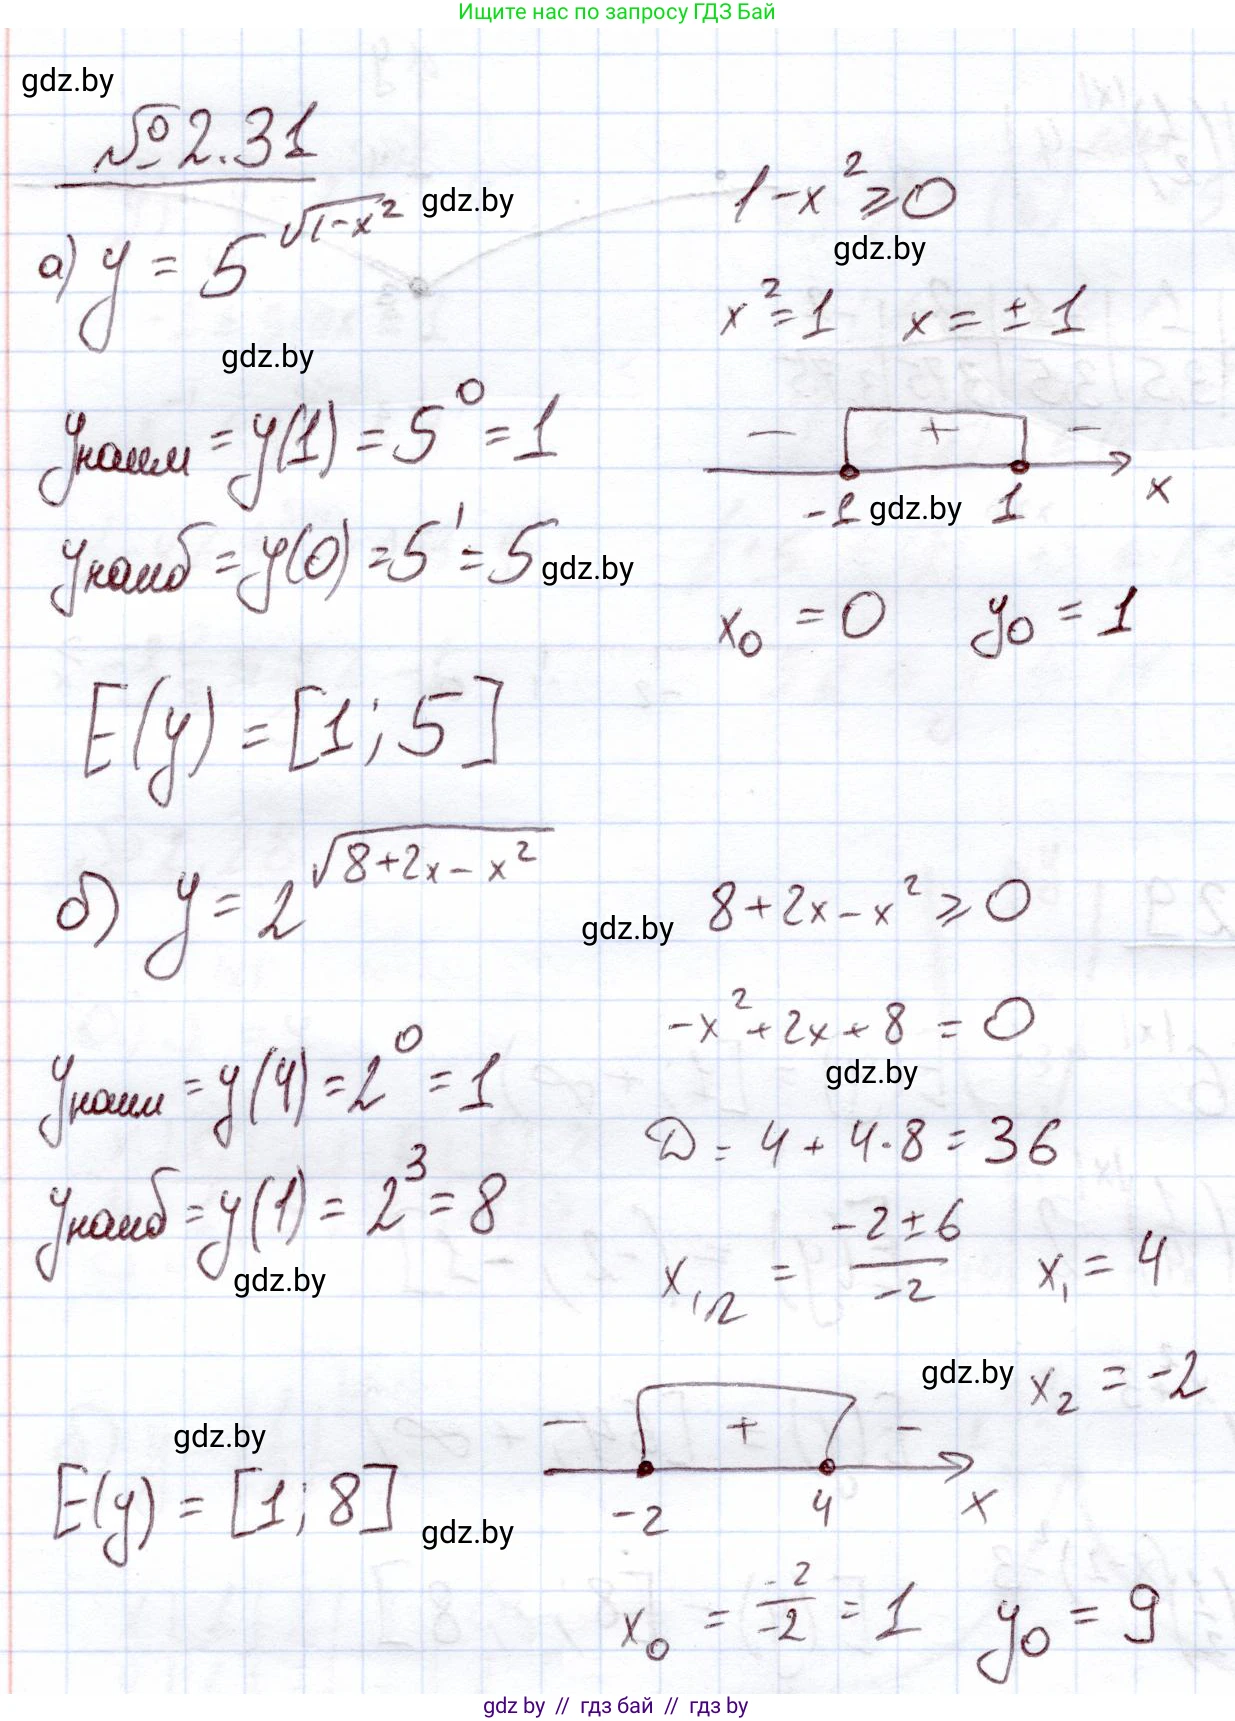 Ищите нас по запросу ГДЗ Бай
gdz.by
№ 2.31
а) y = 5^√(1-x²)
gdz.by
1-x² ≥ 0
gdz.by
x² = 1 x = ± 1
gdz.by
yнаим = y(1) = 5⁰ = 1
− + − x
-1 gdz.by 1
yнаиб = y(0) = 5¹ = 5
gdz.by
x₀ = 0 y₀ = 1
E(y) = [1; 5]
б) y = 2^√(8+2x-x²)
gdz.by
8+2x-x² ≥ 0
-x²+2x+8 = 0
gdz.by
yнаим = y(4) = 2⁰ = 1
D = 4 + 4·8 = 36
yнаиб = y(1) = 2³ = 8
gdz.by
x₁,₂ = (-2±6)/(-2) x₁ = 4
gdz.by
x₂ = -2
gdz.by
− + − x
-2 4
E(y) = [1; 8]
gdz.by
x₀ = -2/-2 = 1 y₀ = 9
gdz by // гдз бай // гдз by